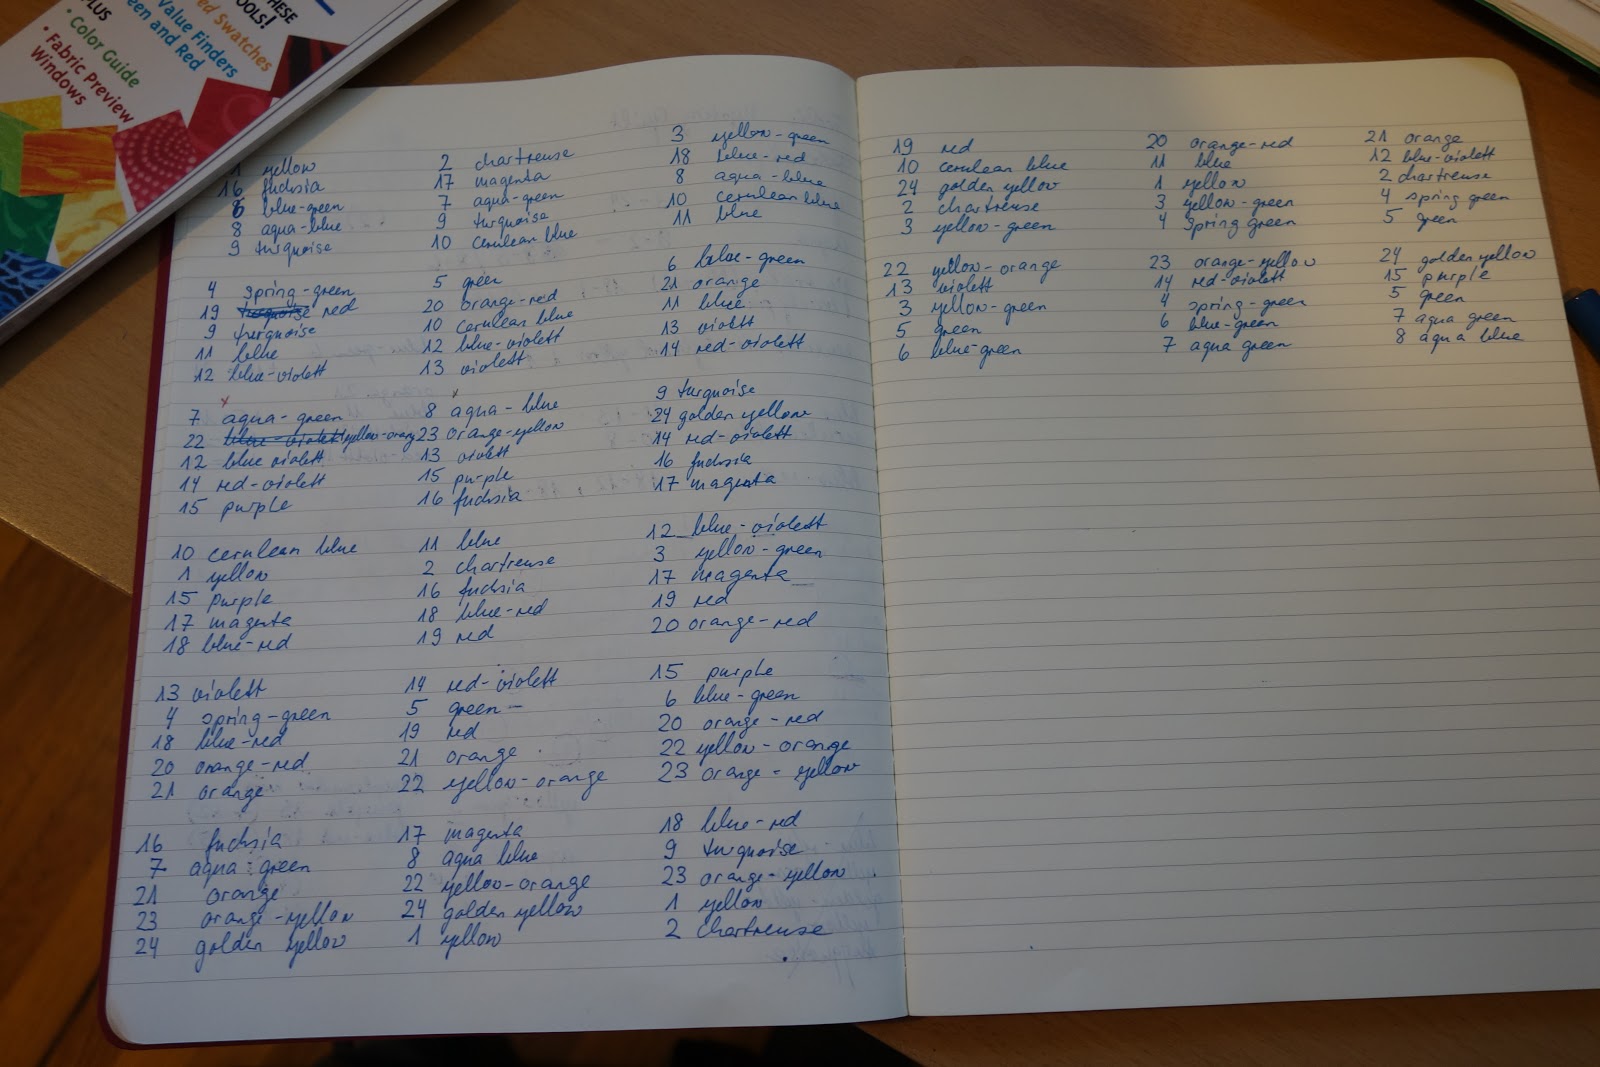 HESE
OOLS!
PLUS
ed Swatches
Value Finders
een and Red
• Color Guide
• Fabric Preview
Windows
1 yellow 2 chartreuse 3 yellow-green
16 fuchsia 17 magenta 18 blue-red
6 blue-green 7 aqua-green 8 aqua-blue
8 aqua-blue 9 turquoise 10 cerulean blue
9 turquoise 10 cerulean blue 11 blue
4 spring-green 5 green 6 blue-green
19 turquoise red 20 orange-red 21 orange
9 turquoise 10 cerulean blue 11 blue
11 blue 12 blue-violett 13 violett
12 blue-violett 13 violett 14 red-violett
x x
7 aqua-green 8 aqua-blue 9 turquoise
22 blue-violett yellow-orang 23 orange-yellow 24 golden yellow
12 blue violett 13 violett 14 red-violett
14 red-violett 15 purple 16 fuchsia
15 purple 16 fuchsia 17 magenta
10 cerulean blue 11 blue 12 blue-violett
1 yellow 2 chartreuse 3 yellow-green
15 purple 16 fuchsia 17 magenta
17 magenta 18 blue-red 19 red
18 blue-red 19 red 20 orange-red
13 violett 14 red-violett 15 purple
4 spring-green 5 green - 6 blue-green
18 blue-red 19 red 20 orange-red
20 orange-red 21 orange 22 yellow-orange
21 orange 22 yellow-orange 23 orange-yellow
16 fuchsia 17 magenta 18 blue-red
7 aqua-green 8 aqua blue 9 turquoise
21 orange 22 yellow-orange 23 orange-yellow
23 orange-yellow 24 golden yellow 1 yellow
24 golden yellow 1 yellow 2 chartreuse
19 red 20 orange-red 21 orange
10 cerulean blue 11 blue 12 blue-violett
24 golden yellow 1 yellow 2 chartreuse
2 chartreuse 3 yellow-green 4 spring green
3 yellow-green 4 spring green 5 green
22 yellow-orange 23 orange-yellow 24 golden yellow
13 violett 14 red-violett 15 purple
3 yellow-green 4 spring-green 5 green
5 green 6 blue-green 7 aqua green
6 blue-green 7 aqua green 8 aqua blue